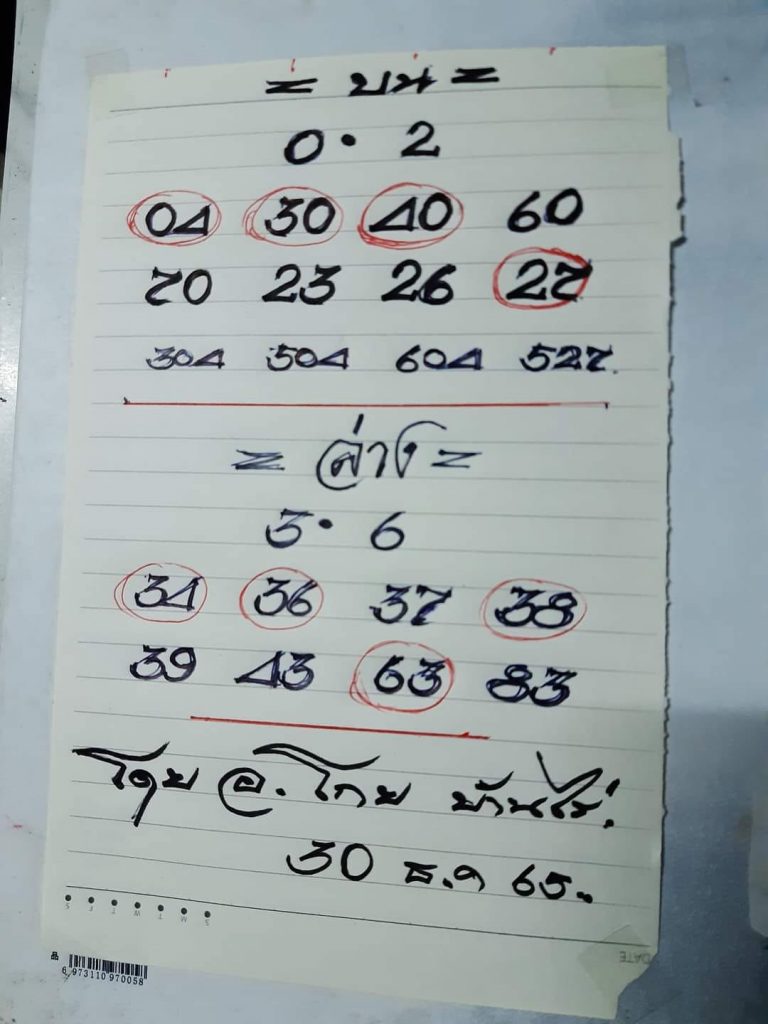 = บน =
0 · 2
04 30 40 60
70 23 26 27
304 504 604 527.
= ล่าง =
3 · 6
34 36 37 38
39 43 63 83
โดย อ. โกย บ้านไร่.
30 ธ.ค 65..
S F T W T M S
DATE
6 973110 970058